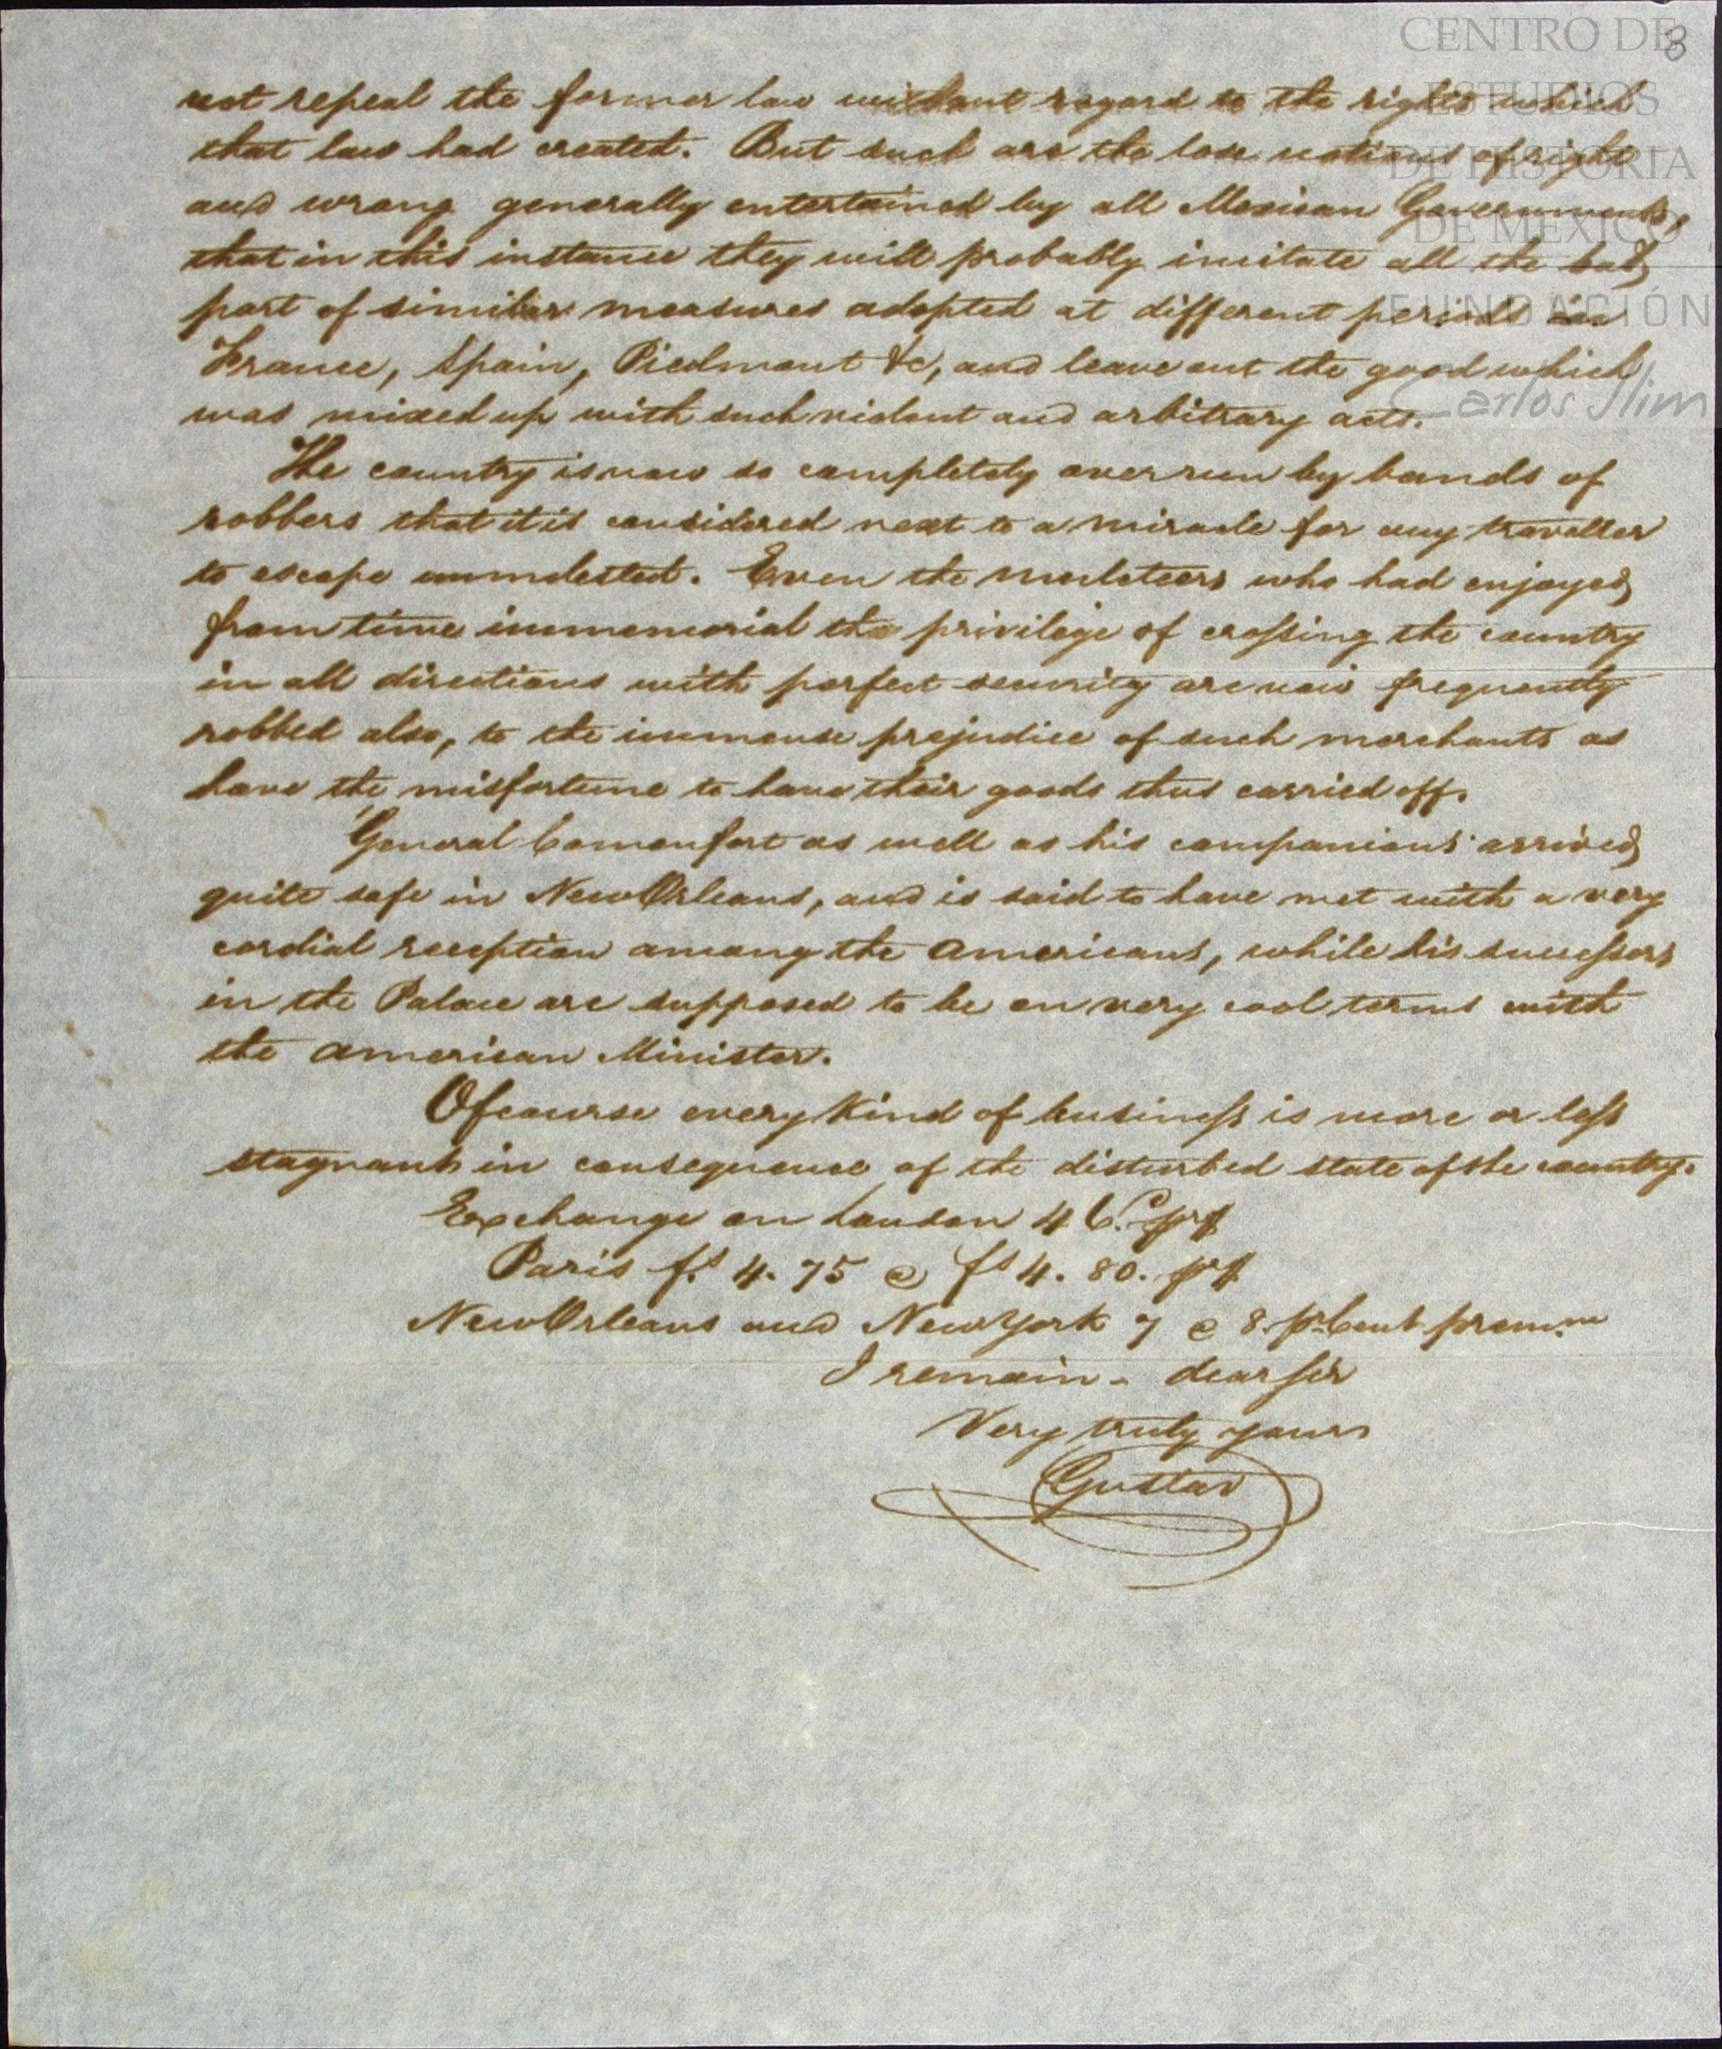 CENTRO DE
ESTUDIOS
DE HISTORIA
DE MÉXICO
FUNDACIÓN
Carlos Slim
not repeal the former law without regard to the rights which
that law had created. But such are the lose notions of right
and wrong generally entertained by all Mexican Governments,
that in this instance they will probably imitate all the bad
part of similar measures adopted at different periods in
France, Spain, Piedmont &c, and leave out the good which
was mixed up with such violent and arbitrary acts.
The country is now so completely overrun by bands of
robbers that it is considered next to a miracle for any traveller
to escape unmolested. Even the muleteers who had enjoyed
from time immemorial the privilege of crossing the country
in all directions with perfect security are now frequently
robbed also, to the immense prejudice of such merchants as
have the misfortune to have their goods thus carried off.
General Comonfort as well as his companions arrived
quite safe in New Orleans, and is said to have met with a very
cordial reception among the Americans, while his successors
in the Palace are supposed to be on very cool terms with
the American Minister.
Of course every kind of business is more or less
stagnant in consequence of the disturbed state of the country.
Exchange on London 46
Paris fs 4. 75 @ fs 4. 80.
New Orleans and New York 7 @ 8. pr Cent premm
I remain - dear sir
Very truly yours
Gustav